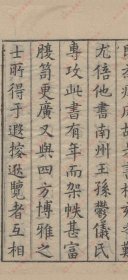 尤倍他書南州王孫鬱儀氏
專攻此書有年而架帙甚富
腹笥更廣又與四方博雅之
士所得于遐搜逖覽者互相